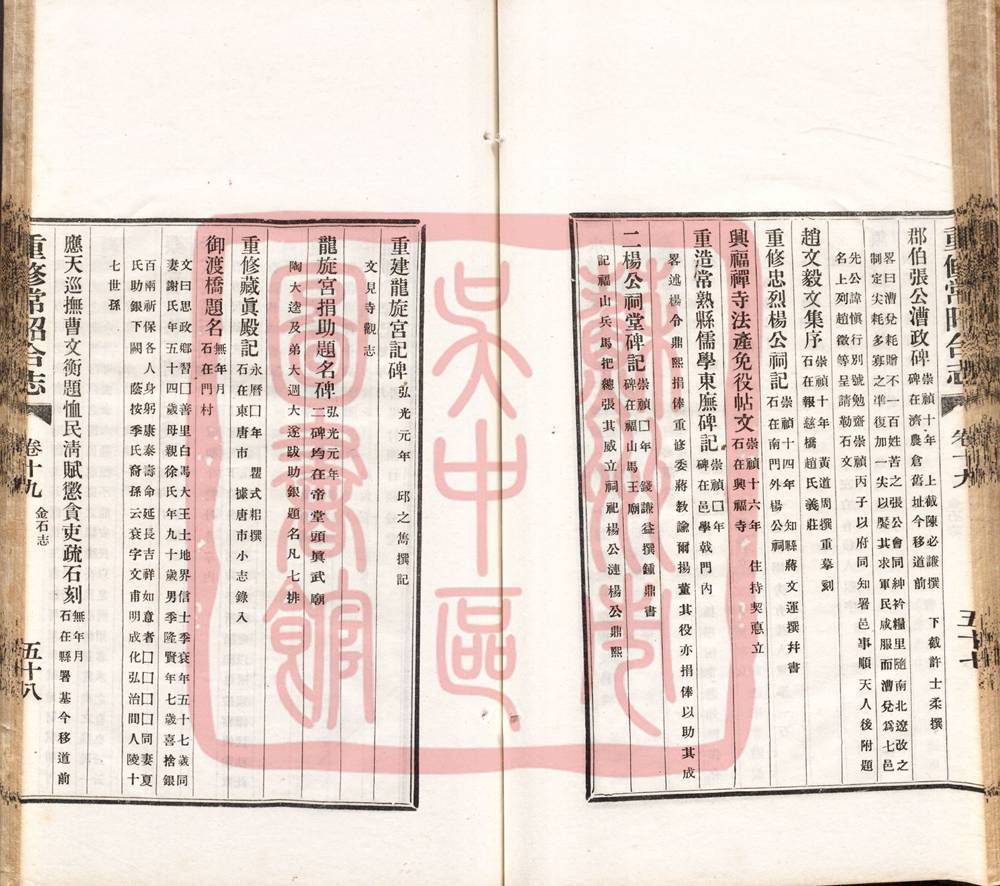 重修常昭合志 卷十九 五十七
郡伯張公漕政碑 崇禎十年 上截陳必謙撰 下截許士柔撰
碑在濟農倉舊址今移道前
畧曰漕兌耗贈不一百姓苦之張公會同紳衿糧里隨南北遼改之
制定尖耗多寡之準復加一尖以髮其求軍民成服而漕兌爲七邑
先公諱愼行別號勉齋崇禎丙子以府同知署邑事順天人後附題
名上列趙徵等呈請勒石文
趙文毅文集序 崇禎十年 黃道周撰 重摹刻
石在報慈橋趙氏義莊
重修忠烈楊公祠記 崇禎十四年 知縣蔣文運撰幷書
石在南門外楊公祠
興福禪寺法產免役帖文 崇禎十六年 住持契悳立
石在興福寺
重造常熟縣儒學東廡碑記 崇禎囗年
碑在邑學戟門內
畧述楊令鼎熙捐俸重修委蔣教諭爾揚董其役亦捐俸以助其成
二楊公祠堂碑記 崇禎囗年 錢謙益撰 鍾鼎書
碑在福山馬王廟
記福山兵馬把總張其威立祠祀楊公漣楊公鼎熙
重建龍旋宮記碑 弘光元年 邱之雋撰記
文見寺觀志
龍旋宮捐助題名碑 弘光元年
二碑均在帝堂頭眞武廟
陶大逵及弟大週大遂跋助銀題名凡七排
重修藏眞殿記 永曆囗年 瞿式耜撰
石在東唐市 據唐市小志錄入
御渡橋題名 無年月
石在門村
文曰思政鄕習囗善里白馬大王土地界信士季袞年五十七歲同
妻謝氏年五十四歲母親徐氏年九十歲男季隆賢年七歲喜捨銀
百兩祈保各人身躬康泰壽命延長吉祥如意者囗囗囗囗同妻夏
氏助銀下闕 蔭按季氏裔孫云袞字文甫明成化弘治間人陵十
七世孫
應天巡撫曹文衡題恤民淸賦懲貪吏疏石刻 無年月
石在縣署基今移道前
重修常昭合志 卷十九 金石志 五十八